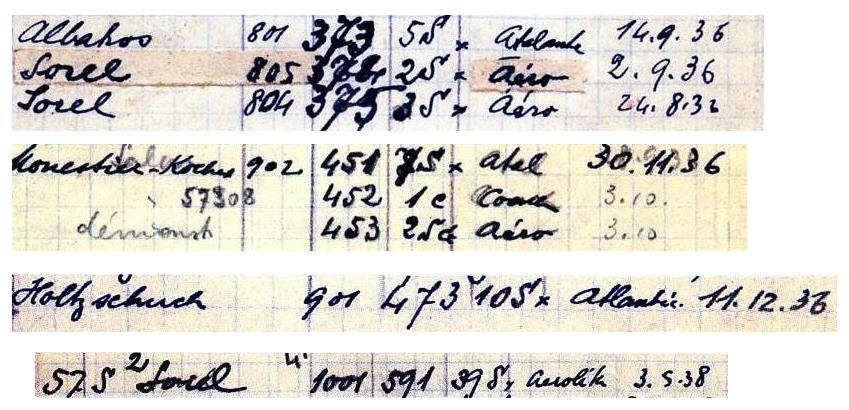 Albatros 801 373 5S x Atalante 14.9.36
Sorel 805 2S x Aéro 2.9.36
Sorel 804 375 3S x Aéro 24.8.36
Monestier-Kochu 902 451 7S x Atal 30.11.36
57308 452 1c Coach 3.10.
démonst 453 2Sc Aéro 3.10
Holtzschuch 901 473 10S x Atlantic. 11.12.36
57S 2 Sorel 4. 1001 591 39S x aerolik 3.5.38